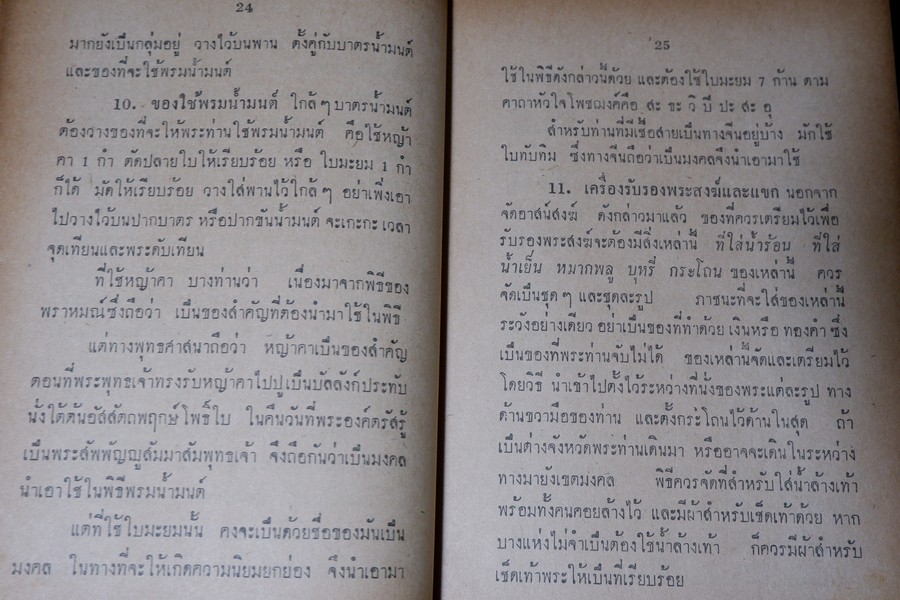 24
มากยังเป็นกลุ่มอยู่ วางไว้บนพาน ตั้งคู่กับบาตรน้ำมนต์
และของที่จะใช้พรมน้ำมนต์
10. ของใช้พรมน้ำมนต์ ใกล้ๆบาตรน้ำมนต์
ต้องวางของที่จะให้พระท่านใช้พรมน้ำมนต์ คือใช้หญ้า
คา 1 กำ ตัดปลายใบให้เรียบร้อย หรือ ใบมะยม 1 กำ
ก็ได้ มัดให้เรียบร้อย วางใส่พานไว้ใกล้ๆ อย่าเพิ่งเอา
ไปวางไว้บนปากบาตร หรือปากขันน้ำมนต์ จะเกะกะ เวลา
จุดเทียนและพระดับเทียน
ที่ใช้หญ้าคา บางท่านว่า เนื่องมาจากพิธีของ
พราหมณ์ซึ่งถือว่า เป็นของสำคัญที่ต้องนำมาใช้ในพิธี
แต่ทางพุทธศาสนาถือว่า หญ้าคาเป็นของสำคัญ
ตอนที่พระพุทธเจ้าทรงรับหญ้าคาไปปูเป็นบัลลังก์ประทับ
นั่งใต้ต้นอัสสัตถพฤกษ์โพธิ์ใบ ในคืนวันที่พระองค์ตรัสรู้
เป็นพระสัพพัญญูสัมมาสัมพุทธเจ้า จึงถือกันว่าเป็นมงคล
นำเอาใช้ในพิธีพรมน้ำมนต์
แต่ที่ใช้ใบมะยมนั้น คงจะเป็นด้วยชื่อของมันเป็น
มงคล ในทางที่จะให้เกิดความนิยมยกย่อง จึงนำเอามา
25
ใช้ในพิธีดังกล่าวนี้ด้วย และต้องใช้ใบมะยม 7 ก้าน ตาม
คาถาหัวใจโพชฌงค์คือ สะ ธะ วิ ปี ปะ สะ อุ
สำหรับท่านที่มีเชื้อสายเป็นทางจีนอยู่บ้าง มักใช้
ใบทับทิม ซึ่งทางจีนถือว่าเป็นมงคลจึงนำเอามาใช้
11. เครื่องรับรองพระสงฆ์และแขก นอกจาก
จัดอาสน์สงฆ์ ดังกล่าวมาแล้ว ของที่ควรเตรียมไว้เพื่อ
รับรองพระสงฆ์จะต้องมีสิ่งเหล่านี้ ที่ใส่น้ำร้อน ที่ใส่
น้ำเย็น หมากพลู บุหรี่ กระโถน ของเหล่านี้ ควร
จัดเป็นชุดๆ และชุดละรูป ภาชนะที่จะใส่ของเหล่านี้
ระวังอย่างเดียว อย่าเป็นของที่ทำด้วย เงินหรือ ทองคำ ซึ่ง
เป็นของที่พระท่านจับไม่ได้ ของเหล่านี้จัดและเตรียมไว้
โดยวิธี นำเข้าไปตั้งไว้ระหว่างที่นั่งของพระแต่ละรูป ทาง
ด้านขวามือของท่าน และตั้งกระโถนไว้ด้านในสุด ถ้า
เป็นต่างจังหวัดพระท่านเดินมา หรืออาจจะเดินในระหว่าง
ทางมายังเขตมงคล พิธีควรจัดที่สำหรับใส่น้ำล้างเท้า
พร้อมทั้งคนคอยล้างไว้ และมีผ้าสำหรับเช็ดเท้าด้วย หาก
บางแห่งไม่จำเป็นต้องใช้น้ำล้างเท้า ก็ควรมีผ้าสำหรับ
เช็ดเท้าพระให้เป็นที่เรียบร้อย